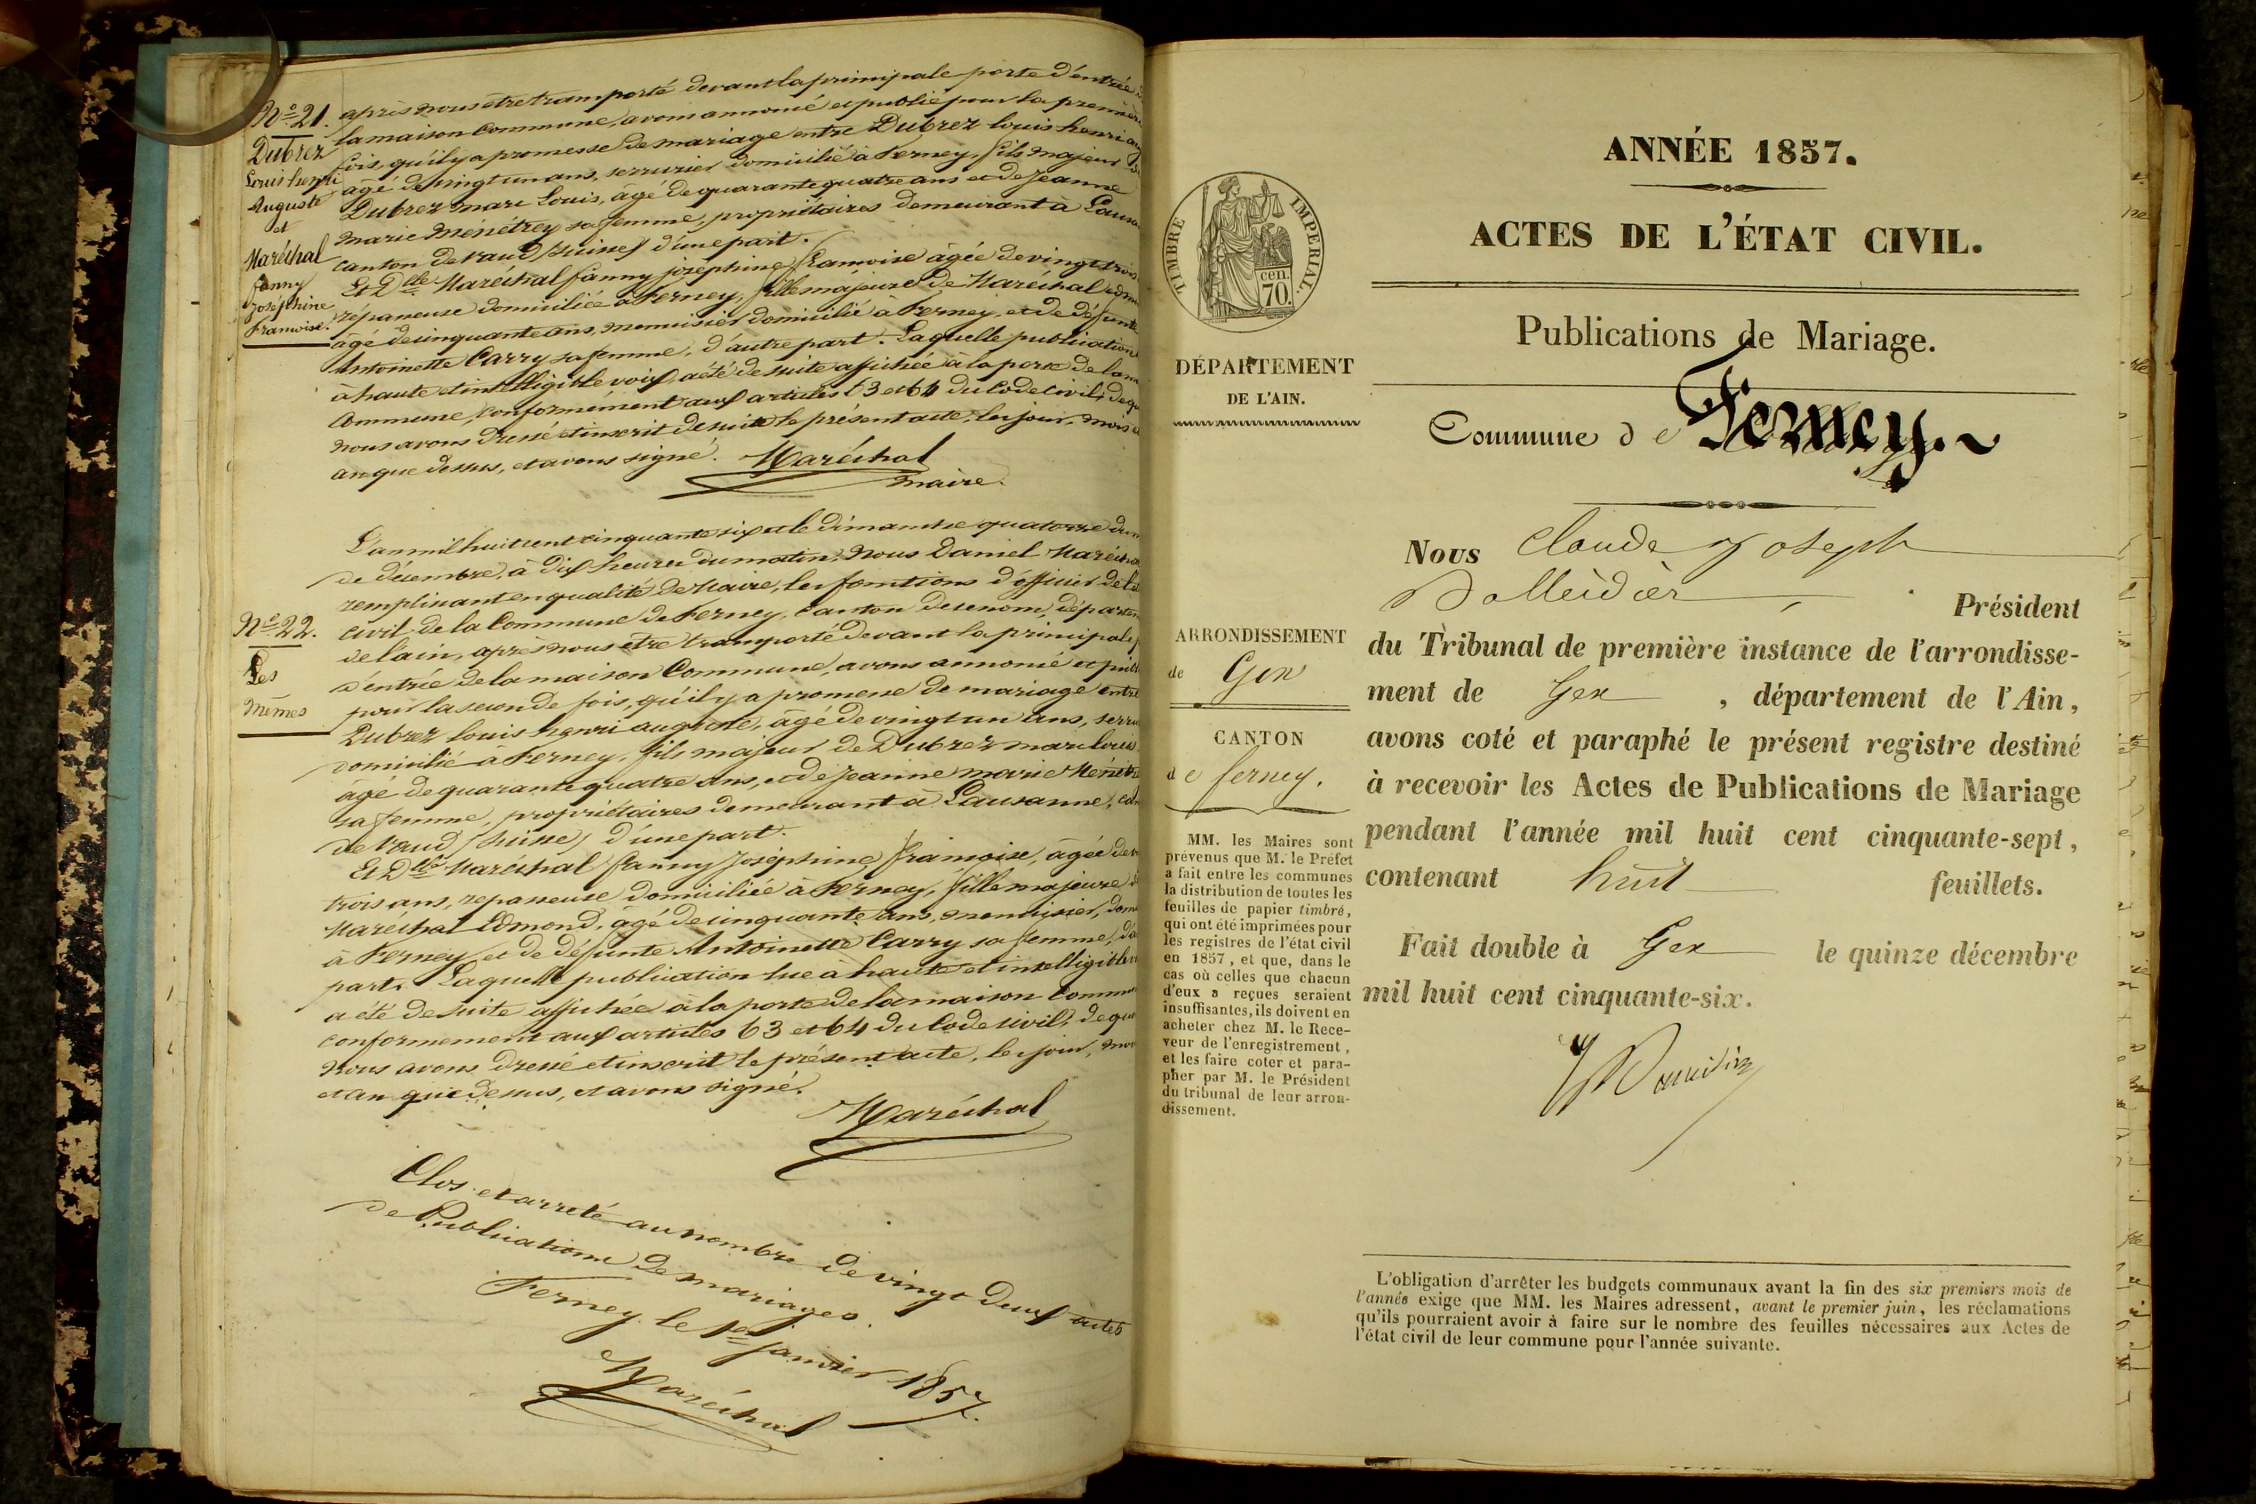 Nº 21.
Dubrez
Louis henri
Auguste
et
Maréchal
fanny
Joséphine
françoise.
après nous être transporté devant la principale porte d'entrée
la maison Commune, avons annoncé et publié pour la première
fois, qu'il y a promesse de mariage entre Dubrez louis henri
âgé de vingt un ans, serrurier domicilié à Ferney, fils majeur
Dubrez marc Louis, âgé de quarante quatre ans et de Jeanne
marie Menétrey sa femme, propriétaires demeurant à
canton de vaud (Suisse) d'une part.
Et Dlle Maréchal fanny joséphine françoise âgée de vingt trois
repasseuse domiciliée à Ferney, fille majeure de Maréchal
âgé de cinquante ans, menuisier domicilié à Ferney, et de défunte
Antoinette Carry sa femme, d'autre part. Laquelle publication
à haute et intelligible voix, a été de suite affichée à la porte de la
Commune, conformément aux articles 63 et 64 du Code civil, de
nous avons dressé et inscrit de suite le présent acte, les jour, mois
an que dessus, et avons signé. Maréchal
maire.
Nº 22.
Les
mêmes
L'an mil huit cent cinquante six et le dimanche quatorze du
de décembre, à dix heures du matin, Nous Daniel
remplissant en qualité de Maire, les fonctions d'officier de
civil de la Commune de Ferney, canton de ce nom,
de l'ain, après nous être transporté devant la principale
d'entrée de la maison Commune, avons annoncé et
pour la seconde fois, qu'il y a promesse de mariage entre
Dubrez louis henri auguste, âgé de vingt un ans,
domicilié à Ferney, fils majeur de Dubrez marc louis
âgé de quarante quatre ans, et de Jeanne marie
sa femme, propriétaires demeurant à Lausanne,
de Vaud (Suisse) d'une part.
Et Dlle Maréchal fanny Joséphine françoise, âgée de
trois ans, repasseuse domiciliée à Ferney, fille majeure
Maréchal Edmond, âgé de cinquante ans, menuisier,
à Ferney et de défunte Antoinette Carry sa femme,
part. Laquelle publication lue à haute et intelligible
a été de suite affichée à la porte de la maison
conformement aux articles 63 et 64 du Code civil, de
Nous avons dressé et inscrit le présent acte, les jour,
et an que dessus, et avons signé.
Maréchal
Clos et arreté au nombre de vingt deux actes
de Publications de mariages.
Ferney le 1er janvier 1857.
Maréchal
TIMBRE IMPERIAL.
cen.
70.
DÉPARTEMENT
DE L'AIN.
ARRONDISSEMENT
de Gex
CANTON
de ferney.
MM. les Maires sont
prévenus que M. le Préfet
a fait entre les communes
la distribution de toutes les
feuilles de papier timbré,
qui ont été imprimées pour
les registres de l'état civil
en 1857, et que, dans le
cas où celles que chacun
d'eux a reçues seraient
insuffisantes, ils doivent en
acheter chez M. le Rece-
veur de l'enregistrement,
et les faire coter et para-
pher par M. le Président
du tribunal de leur arron-
dissement.
ANNÉE 1857.
ACTES DE L'ÉTAT CIVIL.
Publications de Mariage.
Commune de Ferney.
Nous Claude Joseph
Président
du Tribunal de première instance de l'arrondisse-
ment de Gex, département de l'Ain,
avons coté et paraphé le présent registre destiné
à recevoir les Actes de Publications de Mariage
pendant l'année mil huit cent cinquante-sept,
contenant huit feuillets.
Fait double à Gex le quinze décembre
mil huit cent cinquante-six.
L'obligation d'arrêter les budgets communaux avant la fin des six premiers mois de
l'année exige que MM. les Maires adressent, avant le premier juin, les réclamations
qu'ils pourraient avoir à faire sur le nombre des feuilles nécessaires aux Actes de
l'état civil de leur commune pour l'année suivante.